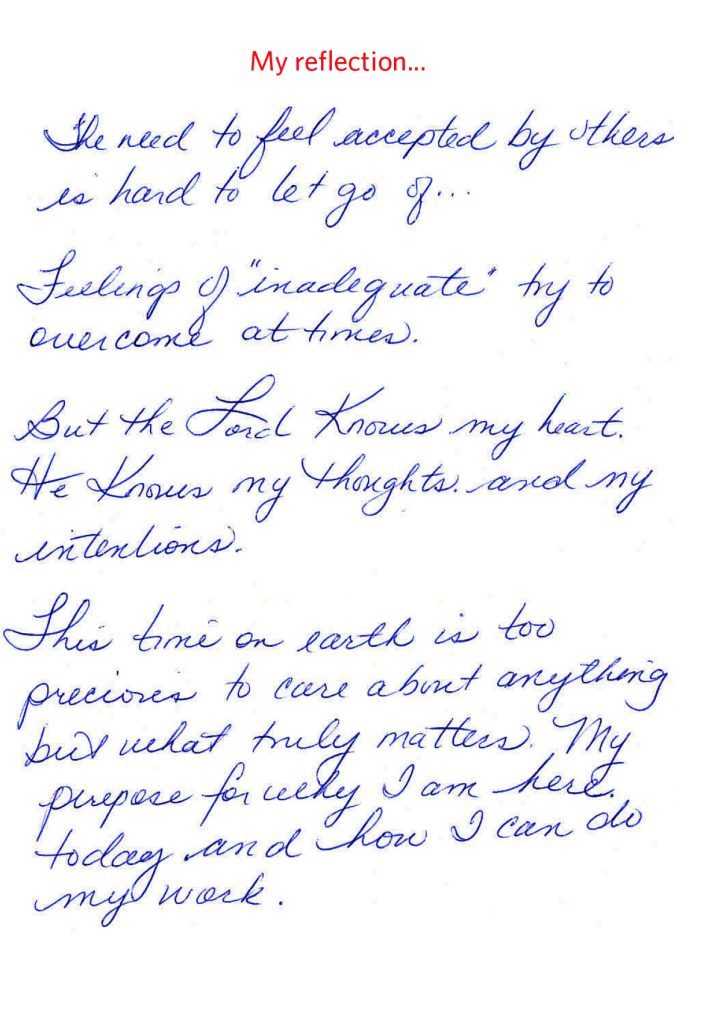 My reflection...
The need to feel accepted by others
is hard to let go of...
Feelings of "inadequate" try to
overcome at times.
But the Lord Knows my heart.
He Knows my thoughts. and my
intentions.
This time on earth is too
precious to care about anything
but what truly matters. My
purpose for why I am here.
today and how I can do
my work.